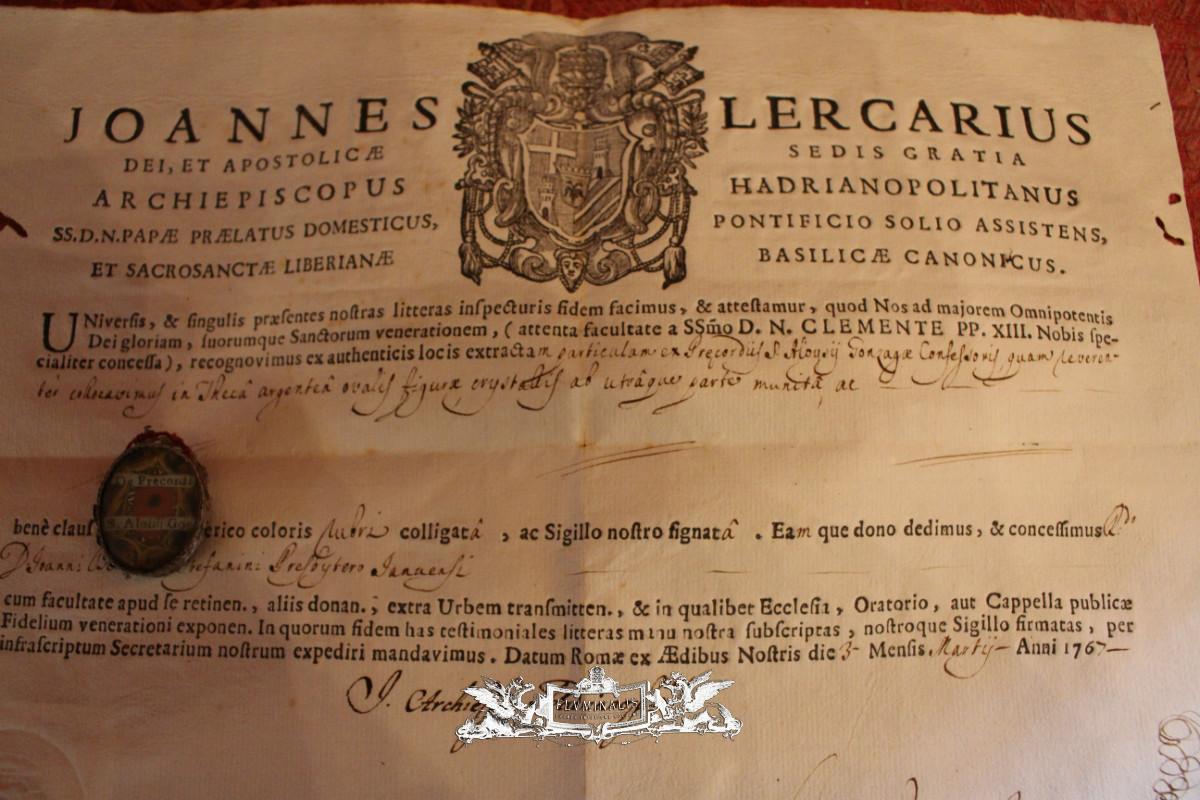 JOANNES LERCARIUS
DEI, ET APOSTOLICÆ SEDIS GRATIA
ARCHIEPISCOPUS HADRIANOPOLITANUS
SS.D.N.PAPÆ PRÆLATUS DOMESTICUS, PONTIFICIO SOLIO ASSISTENS,
ET SACROSANCTÆ LIBERIANÆ BASILICÆ CANONICUS.
UNiversis, & singulis præsentes nostras litteras inspecturis fidem facimus, & attestamur, quod Nos ad majorem Omnipotentis
Dei gloriam, suorumque Sanctorum venerationem, (attenta facultate a SSm̃o D. N. CLEMENTE PP. XIII. Nobis spe-
cialiter concessa), recognovimus ex authenticis locis extractam particulam ex Præcordijs S. Aloysij Gonzagæ Confessoris, quam reveren-
ter collocavimus in Thecâ argenteâ ovalis figuræ crystallis ab utrâque parte munitâ, ac
De Precordi
S. Aloisii Gon
benè claus erico coloris rubri colligatâ, ac Sigillo nostro signatâ. Eam que dono dedimus, & concessimus
D. Joanni Stefanini Presbytero Januensi
cum facultate apud se retinen., aliis donan., extra Urbem transmitten., & in qualibet Ecclesia, Oratorio, aut Cappella publicæ
Fidelium venerationi exponen. In quorum fidem has testimoniales litteras manu nostra subscriptas, nostroque Sigillo firmatas, per
infrascriptum Secretarium nostrum expediri mandavimus. Datum Romæ ex Ædibus Nostris die 3 Mensis Martij Anni 1767
J. Archie